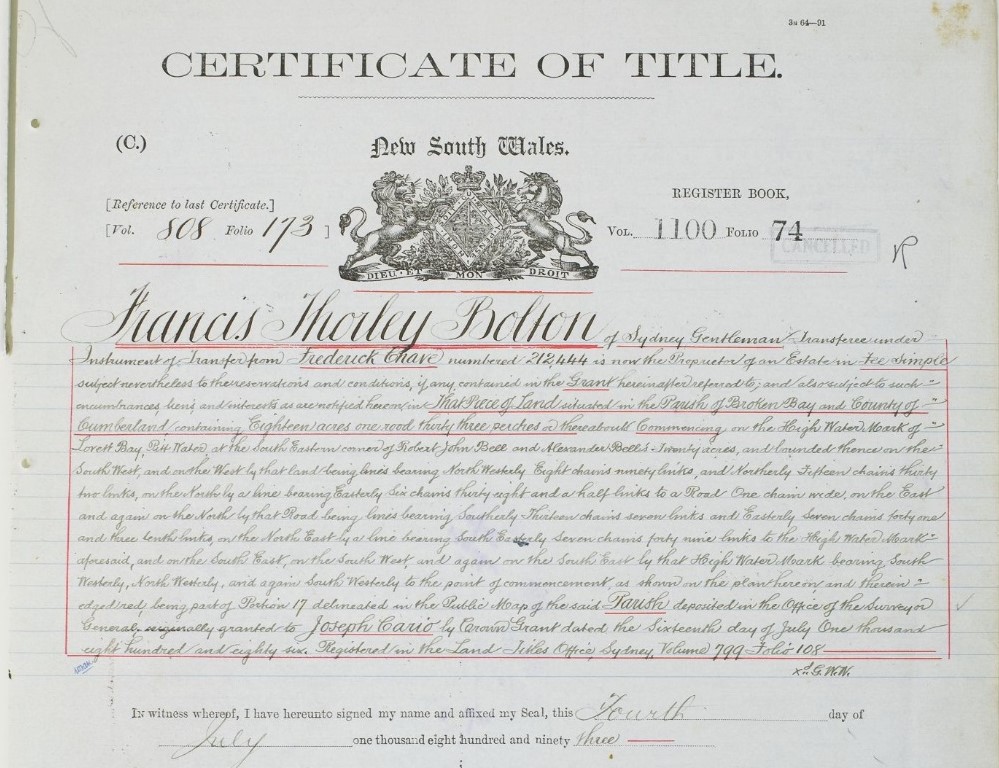 3u 64—91
CERTIFICATE OF TITLE.
(C.)
New South Wales.
[Reference to last Certificate.]
REGISTER BOOK,
[Vol. 808 Folio 173 ]
VOL. 1100 FOLIO 74
CANCELLED
DIEU ET MON DROIT
Francis Thorley Bolton of Sydney Gentleman Transferee under
Instrument of Transfer from Frederick Chave numbered 212444 is now the Proprietor of an Estate in Fee Simple
subject nevertheless to the reservations and conditions, if any, contained in the Grant hereinafter referred to; and also subject to such
encumbrances, liens, and interests as are notified hereon, in That Piece of Land situated in the Parish of Broken Bay and County of
Cumberland containing Eighteen acres one rood thirty three perches or thereabouts Commencing on the High Water Mark of
Lovett Bay, Pitt Water, at the South Eastern corner of Robert John Bell and Alexander Bell's Twenty acres, and bounded thence on the
South West, and on the West by that land being lines bearing North Westerly Eight chains ninety links, and Northerly Fifteen chains thirty
two links, on the North by a line bearing Easterly Six chains thirty eight and a half links to a Road One chain wide, on the East
and again on the North by that Road being lines bearing Southerly Thirteen chains seven links and Easterly Seven chains forty one
and three tenth links, on the North East by a line bearing South Easterly Seven chains forty nine links to the High Water Mark
aforesaid, and on the South East, on the South West, and again on the South East by that High Water Mark bearing South
Westerly, North Westerly, and again South Westerly to the point of commencement, as shown on the plan hereon and therein
edged red being part of Portion 17 delineated in the Public Map of the said Parish deposited in the Office of the Surveyor
General, originally granted to Joseph Cario by Crown Grant dated the Sixteenth day of July One thousand
eight hundred and eighty six. Registered in the Land Titles Office, Sydney, Volume 799 Folio 108
IN witness whereof, I have hereunto signed my name and affixed my Seal, this Fourth day of
July one thousand eight hundred and ninety three